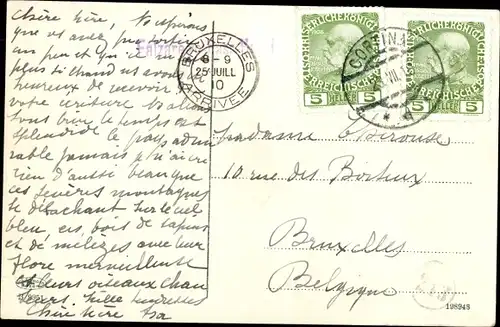 Chère Mère, Nous espérons
que vous avez pu sortir
un peu et qu'il ne
plus si chaud
heureux de recevoir
votre écriture
tous bien le temps est
splendide le pays admi
rable jamais je n'ai vu
rien d'aussi beau que
ces fières montagnes
se détachant sur le ciel
bleu, ces bois de sapins
et de mélèzes avec leur
flore merveilleuse
et leurs oiseaux chan
teurs. Mille tendresses
Chère Mère
BRUXELLES
6-9
25 JUILL
10
ARRIVÉE
KAISERLICHE KÖNIGLICHE
ÖSTERREICHISCHE POST
5 HELLER 5
CORTINA
KAISERLICHE KÖNIGLICHE
ÖSTERREICHISCHE POST
5 HELLER 5
Madame
10 rue des
Bruxelles
Belgique
198948